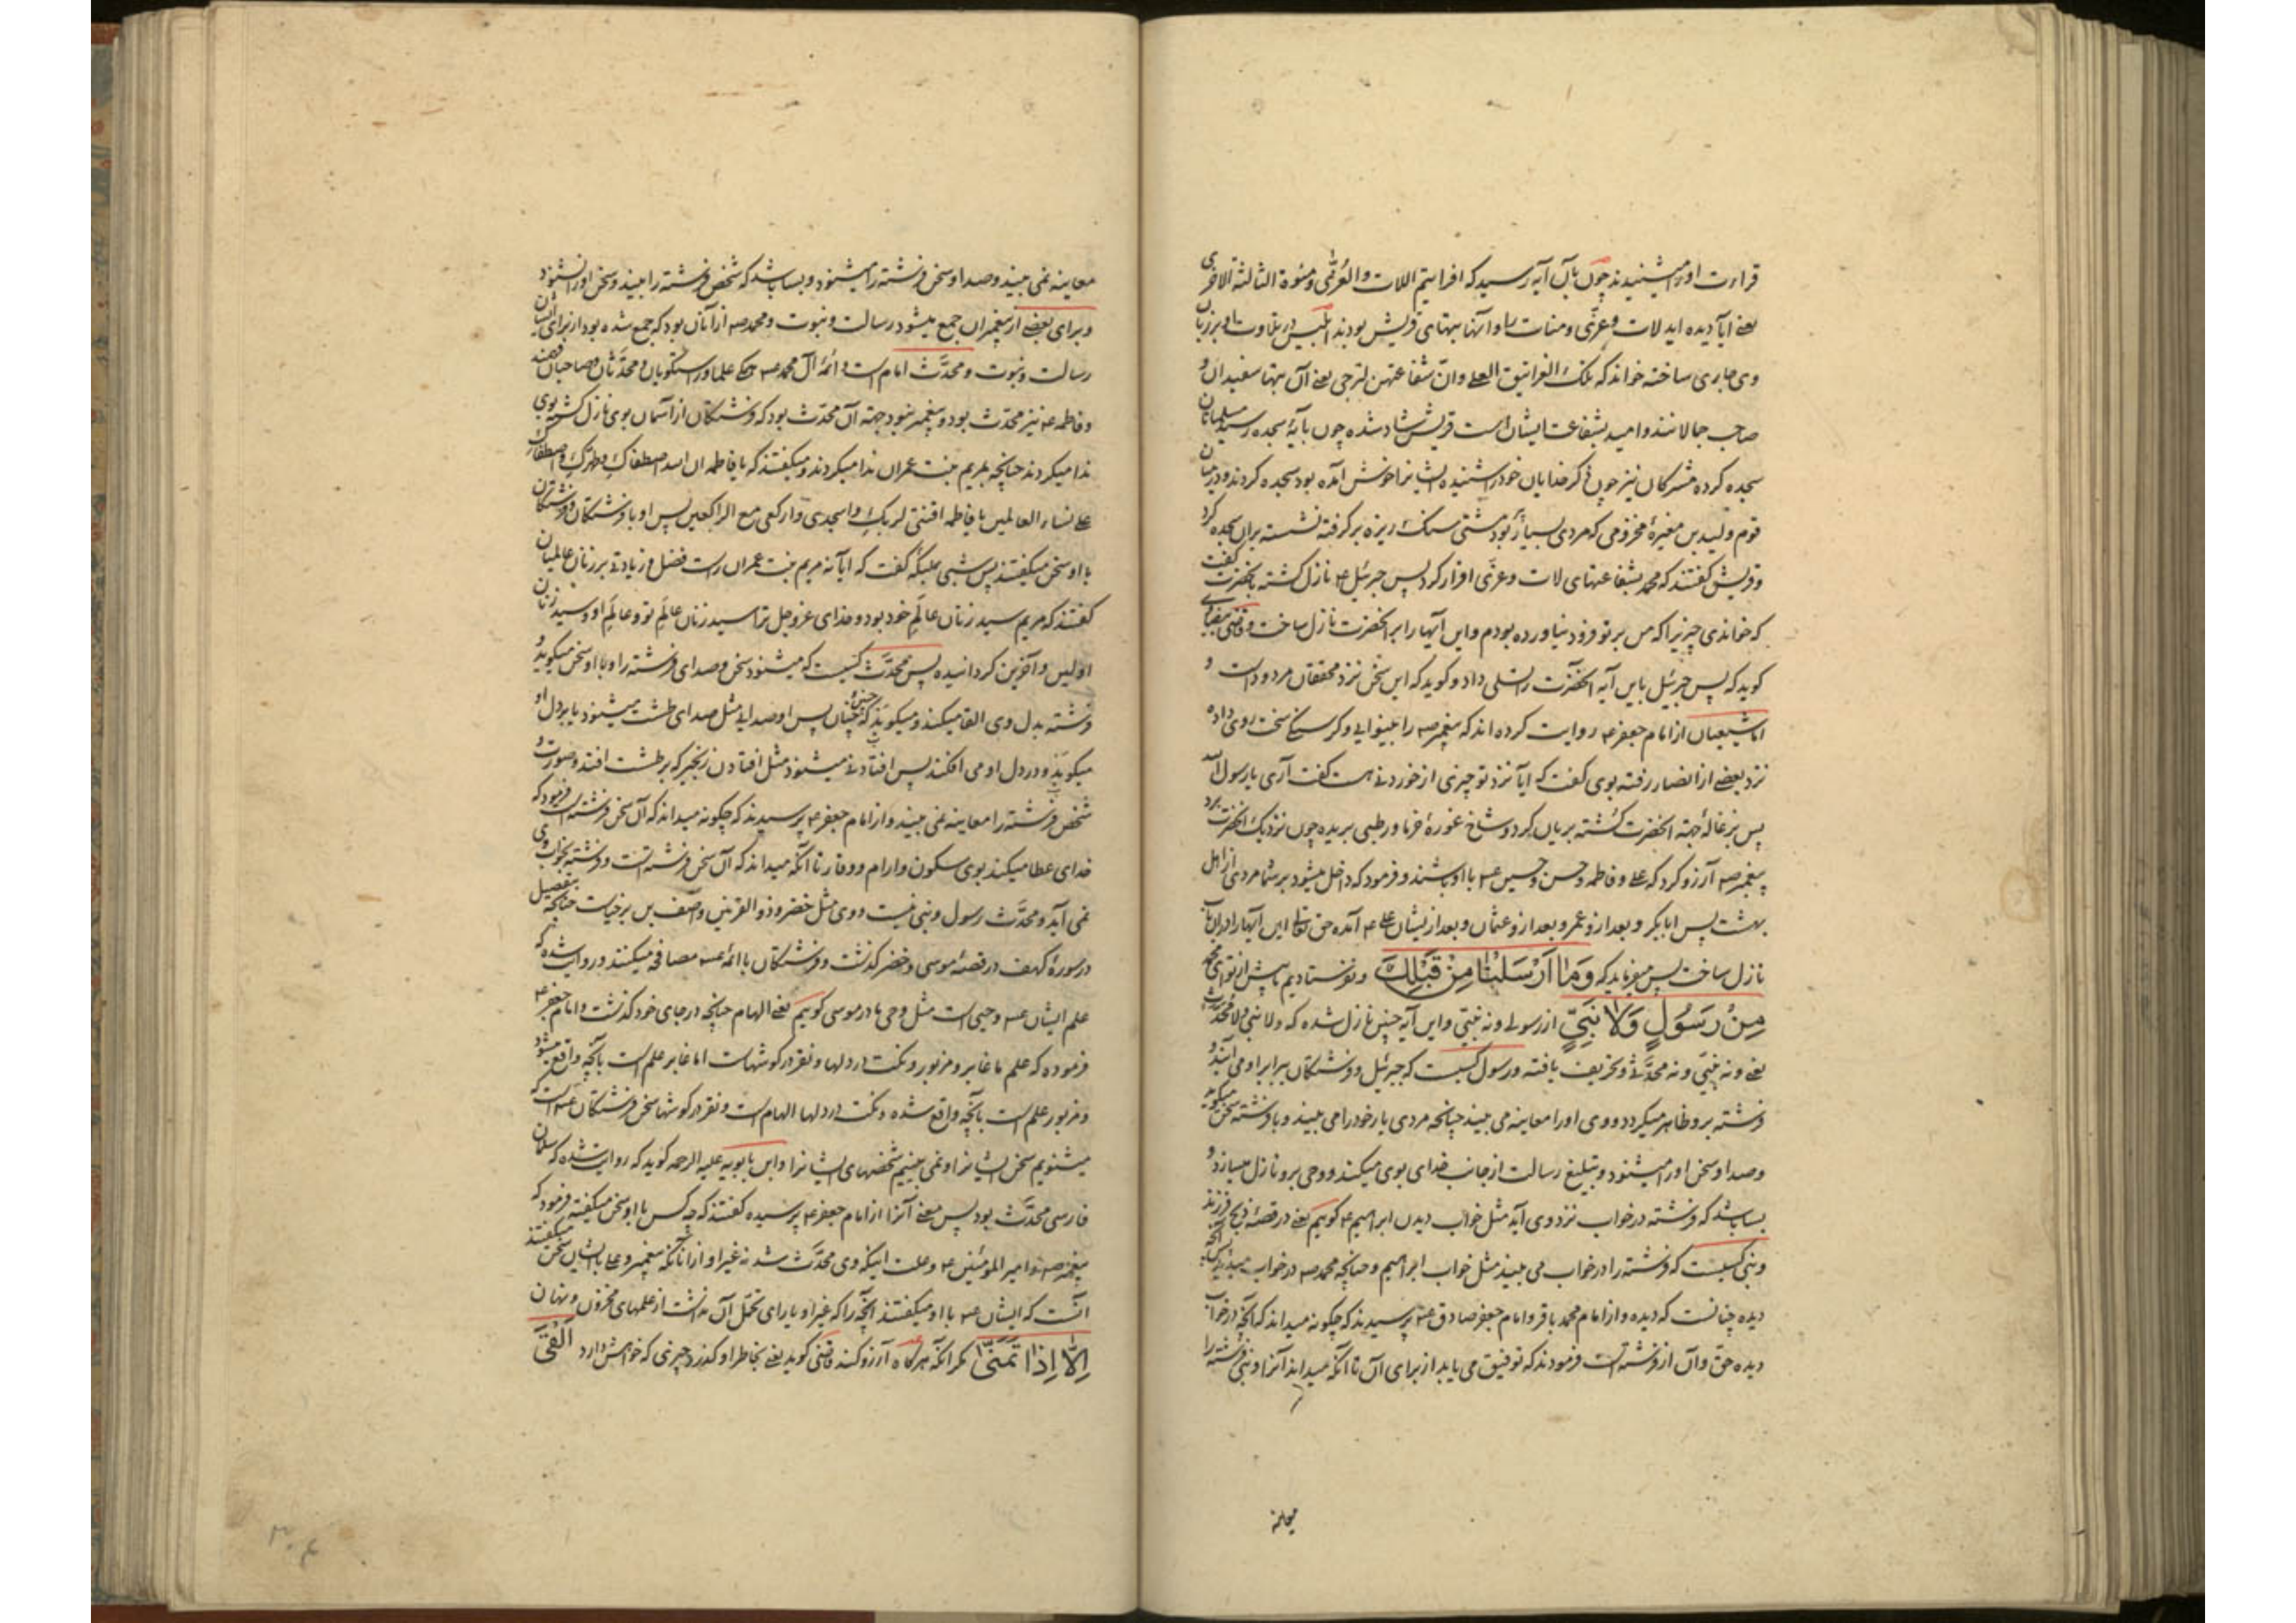 قراءت او را میشنیدند چون بآن آیه رسید که افرایتم اللات والعزّی ومنوة الثالثة الاخری
یعنے ایا دیده اید لات وعزّی ومنات را و اینها بتهای قریش بودند ابلیس در تلاوت او بر زبان
وی جاری ساخته خواند که تلک الغرانیق العلے وانّ شفاعتهن لترجی یعنے آن بتها سفیدان و
صاحب جمالانند وامید بشفاعت ایشان است قریش شاد شده چون بآیهٔ سجده رسید مسلمانان
سجده کرده مشرکان نیز چون ذکر خدایان خود را شنیده ایشانرا خوش آمده بود سجده کردند و در میان
قوم ولید بن مغیرهٔ مخزومی که مردی بسیار بود مشتی سنک ریزه برگرفته نشسته بران سجده کرد
وقریش گفتند که محمد بشفاعتهای لات وعزّی اقرار کرد پس جبرئیل ع نازل کشته بانحضرت گفت
که خواندی چیزیرا که من بر تو فرود نیاورده بودم واین آیها را بر انحضرت نازل ساخت وقاضی بیضاوی
کوید که پس جبرئیل باین آیه انحضرت را تسلی داد و کوید که این سخن نزد محققان مردود است و
اما شیعیان از امام جعفر ع روایت کرده اند که پیغمبر ص را بینوایی و کرسنکی سخت روی داده
نزد بعضے از انصار رفته بوی گفت که ایا نزد تو چیزی از خوردنے هست گفت آری یا رسول الله
پس بزغالهٔ جهة انحضرت کشته بریان کرد و شاخ غورهٔ خرما و رطبی بریده چون نزدیک انحضرت برد
پیغمبر ص آرزو کرد که علے و فاطمه وحسن وحسین ع با او باشند و فرمود که داخل میشود بر شما مردی از اهل
بهشت پس ابابکر و بعد ازو عمر و بعد ازو عثمان و بعد از ایشان علے ع آمده حق تعالی این آیها را در ان باب
نازل ساخت پس میفرماید که وَمٰا اَرْسَلْنٰا مِنْ قَبْلِكَ ونفرستادیم ما پیش از تو ای محمد
مِنْ رَسُولٍ وَلاٰ نَبِيٍّ از رسولے ونه نبیّی واین آیه چنین نازل شده که ولا نبیّ ولا محدّث
یعنے ونه نبیّی ونه محدّثے وتحریف یافته ورسول کسیست که جبرئیل و فرشتکان برابر او می آیند و
فرشته برو ظاهر میکردد و وی او را معاینه می بیند چنانچه مردی یار خود را می بیند و با فرشته سخن میکوید
وصدا وسخن او را میشنود وتبلیغ رسالت از جانب خدای بوی میکند ووحی برو نازل میسازد و
بسا باشد که فرشته در خواب نزد وی آید مثل خواب دیدن ابراهیم ع کوییم یعنے در قصهٔ ذبح فرزند
ونبی کسیست که فرشته را در خواب می بیند مثل خواب ابراهیم وچنانچه محمد ص در خواب میدید پس آنچه
دیده چنانست که دیده واز امام محمد باقر وامام جعفر صادق ع پرسیدند که چکونه میداند که انچه در خواب
دیده حق وآن از فرشته است فرمودند که توفیق می یابد از برای آن تا آنکه میداند آنرا ونبی فرشته را
معاینه نمی بیند وصدا وسخن فرشته را میشنود و بسا باشد که شخص فرشته را بیند وسخن او را نشنود
وبرای بعضے از پیغمبران جمع میشود رسالت ونبوت ومحمد ص از آنان بود که جمع شده بود از برای ایشان
رسالت ونبوت ومحدَّث امام است وائمهٔ آل محمد ع همکی علما و راستکویان ومحدَّثان وصاحبان فهمند
وفاطمه ع نیز محدَّث بود و پیغمبر نبود جهة آن محدَّث بود که فرشتکان از آسمان بوی نازل کشته بوی
ندا میکردند چنانچه بمریم بنت عمران ندا میکردند ومیکفتند که یا فاطمه ان الله اصطفاك وطهرك واصطفاك
علے نساء العالمین یا فاطمه اقنتی لربكِ واسجدی وارکعی مع الراکعین پس او با فرشتکان وفرشتکان
با او سخن میکفتند پس شبی بملیکه گفت که ایا نه مریم بنت عمران راست فضل وزیادتے بر زنان عالمیان
کفتند که مریم سید زنان عالَم خود بود وخدای عزوجل ترا سید زنان عالَم تو وعالَم او وسید زنان
اولین وآخرین کردانیده پس محدَّث کسیست که میشنود سخن وصدای فرشته را و با او سخن میکوید و
فرشته بدل وی القا میکند ومیکوید که چنین و چنان پس او صدایے مثل صدای طشت میشنود یا بر دل او
میکوبد و در دل او می افکند پس افتادنے میشنود مثل افتادن زنجیر که بر طشت افتد وصورت و
شخص فرشته را معاینه نمی بیند واز امام جعفر ع پرسیدند که چکونه میداند که آن سخن فرشته است فرمود که
خدای عطا میکند بوی سکون وارام ووقار تا آنکه میداند که آن سخن فرشته است وفرشته بخواب وی
نمی آید ومحدَّث رسول ونبی نیست ووی مثل خضر وذو القرنین وآصف بن برخیاست چنانچه بتفصیل
در سورهٔ کهف در قصهٔ موسی وخضر کذشت وفرشتکان با ائمه ع مصافحه میکنند وروایت شده که
علم ایشان ع وحیی است مثل وحی مادر موسی کوییم یعنے الهام چنانچه در جای خود کذشت وامام جعفر ع
فرموده که علم ما غابر ومزبور ونکت در دلها ونقر در کوشهاست اما غابر علم است بآنچه واقع میشود
ومزبور علم است بآنچه واقع شده ونکت در دلها الهام است ونقر در کوشها سخن فرشتکان ع است که
میشنویم سخن ایشانرا و نمی بینیم شخصهای ایشانرا وابن بابویه علیه الرحمه کوید که روایت شده که سلمان
فارسی محدَّث بود پس معنے آنرا از امام جعفر ع پرسیده کفتند که چه کس با او سخن میکفته فرمود که
پیغمبر ص و امیر المؤمنین ع وعلت اینکه وی محدَّث شد نه غیر او از آنانکه پیغمبر وعلے با ایشان سخن میکفتند
انست که ایشان ع با او میکفتند انچه را که غیر او یارای تحمّل آن نداشت از علمهای مخزون ونهان
اِلاّٰ اِذٰا تَمَنّٰى مکر آنکه هرگاه آرزو کند قاضی کوید یعنے بخاطر او کذرد چیزی که خواهش دارد اَلْقَى